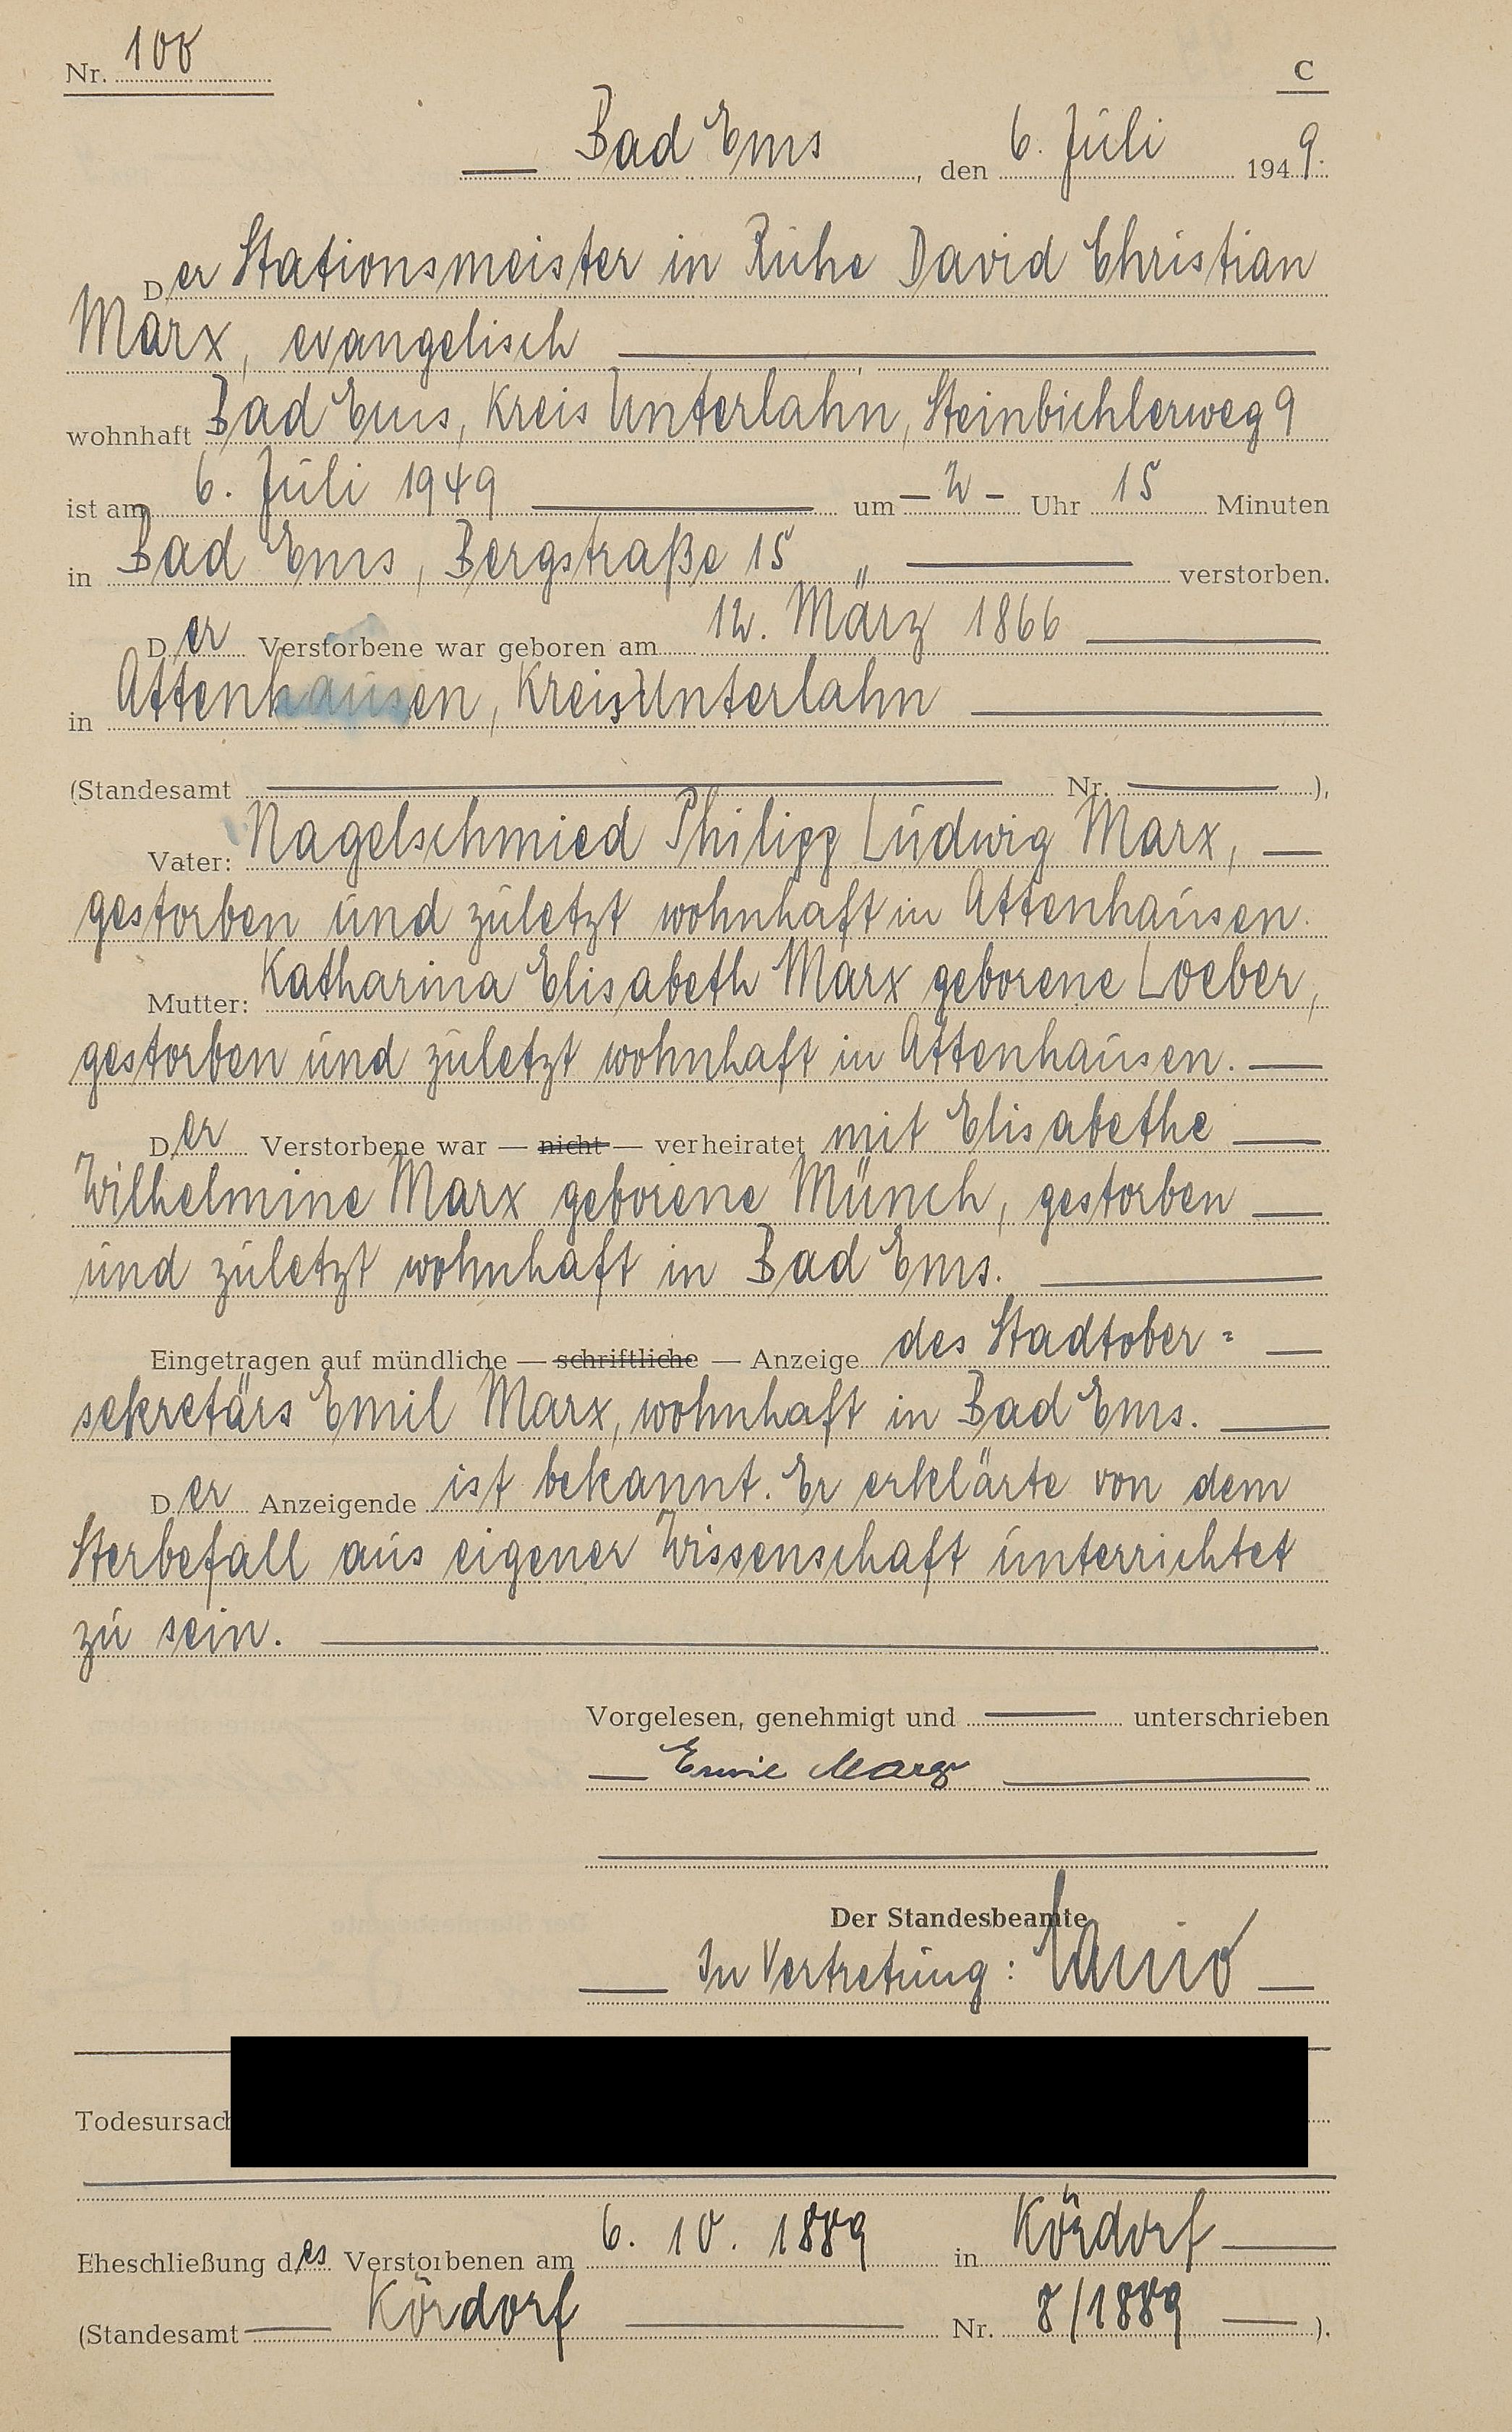 Nr. 100
C
Bad Ems, den 6. Juli 1949.
Der Stationsmeister in Ruhe David Christian
Marx, evangelisch
wohnhaft Bad Ems, Kreis Unterlahn, Steinbichlerweg 9
ist am 6. Juli 1949 um - 2 - Uhr 15 Minuten
in Bad Ems, Bergstraße 15 verstorben.
Der Verstorbene war geboren am 12. März 1866
in Attenhausen, Kreis Unterlahn
(Standesamt Nr. ),
Vater: Nagelschmied Philipp Ludwig Marx,
gestorben und zuletzt wohnhaft in Attenhausen.
Mutter: Katharina Elisabeth Marx geborene Loeber,
gestorben und zuletzt wohnhaft in Attenhausen.
Der Verstorbene war — nicht — verheiratet mit Elisabethe
Wilhelmine Marx geborene Münch, gestorben
und zuletzt wohnhaft in Bad Ems.
Eingetragen auf mündliche — schriftliche — Anzeige des Stadtober=
sekretärs Emil Marx, wohnhaft in Bad Ems.
Der Anzeigende ist bekannt. Er erklärte von dem
Sterbefall aus eigener Wissenschaft unterrichtet
zu sein.
Vorgelesen, genehmigt und unterschrieben
Emil Marx
Der Standesbeamte
In Vertretung:
Todesursach
Eheschließung des Verstorbenen am 6. 10. 1889 in Kördorf
(Standesamt Kördorf Nr. 8/1889 ).